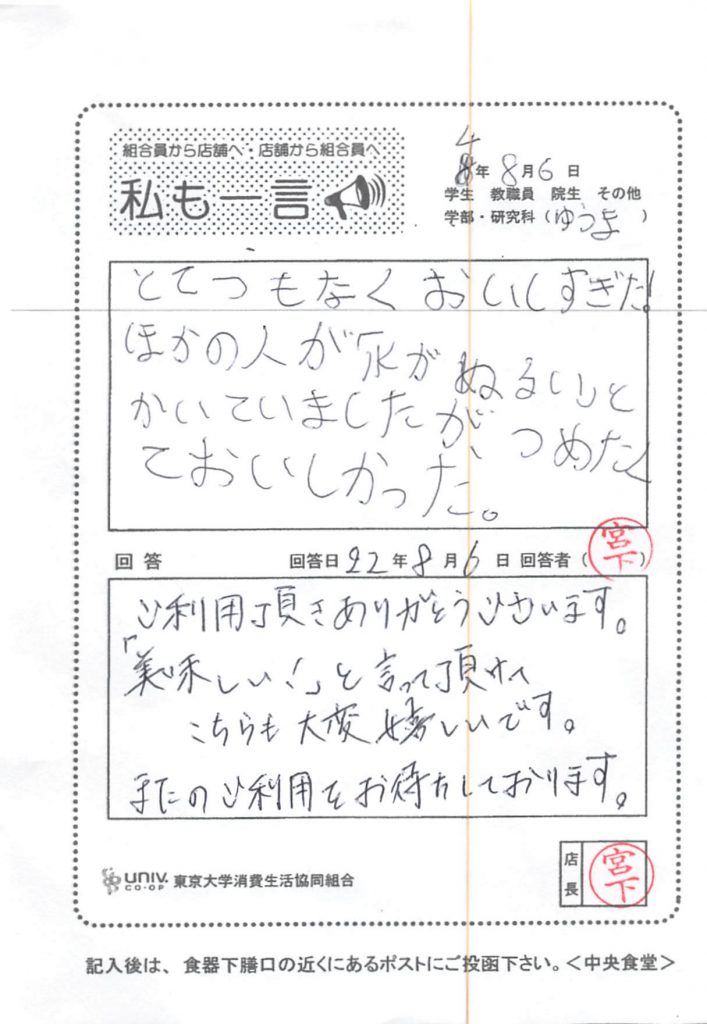 組合員から店舗へ・店舗から組合員へ
私も一言
4年 8月 6日
学生 教職員 院生 その他
学部・研究科（ゆうま）
とてつもなくおいしすぎた!
ほかの人が「水がぬるい」と
かいていましたが、つめたく
ておいしかった。
回答 回答日 22年 8月 6日 回答者（宮下）
ご利用頂きありがとうございます。
「美味しい!」と言って頂けて
こちらも大変嬉しいです。
またのご利用をお待ちしております。
UNIV. CO-OP 東京大学消費生活協同組合
店長 宮下
記入後は、食器下膳口の近くにあるポストにご投函下さい。＜中央食堂＞